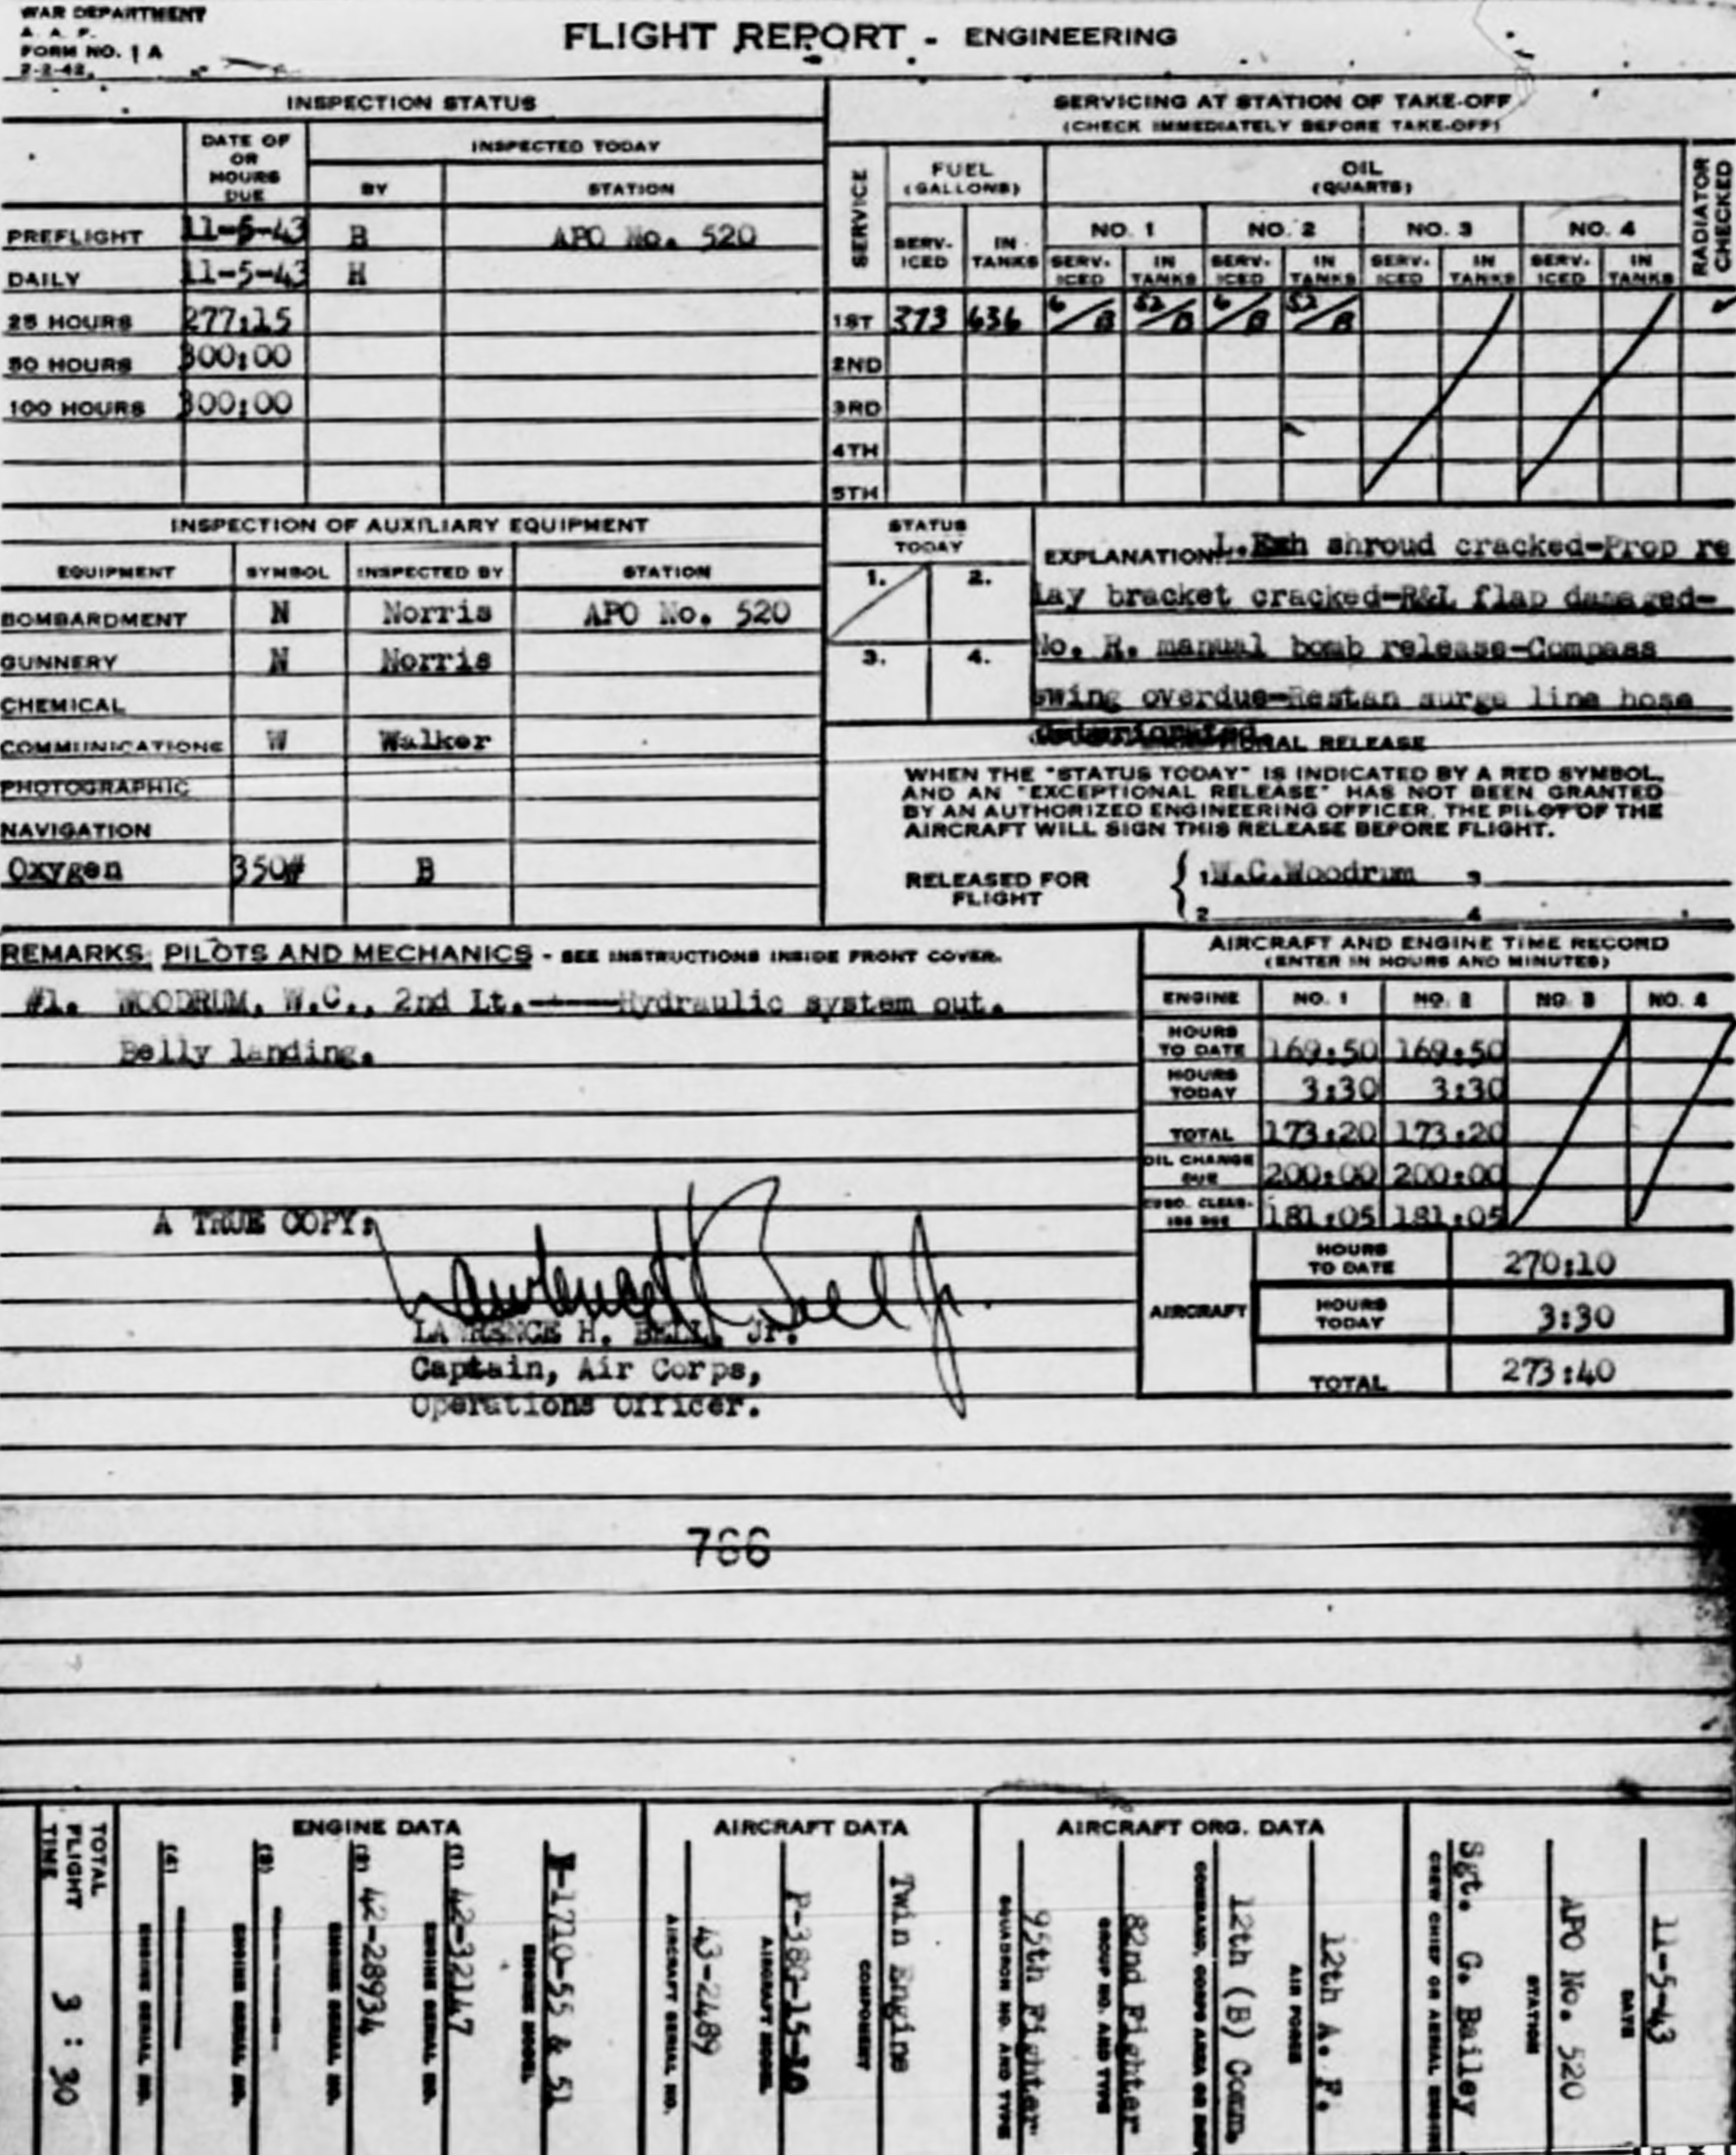 WAR DEPARTMENT
A. A. F.
FORM NO. 1 A
2-2-42.
FLIGHT REPORT - ENGINEERING
INSPECTION STATUS
DATE OF OR HOURS DUE
INSPECTED TODAY
BY STATION
PREFLIGHT 11-5-43 B APO No. 520
DAILY 11-5-43 H
25 HOURS 277:15
50 HOURS 300:00
100 HOURS 300:00
SERVICING AT STATION OF TAKE-OFF
(CHECK IMMEDIATELY BEFORE TAKE-OFF)
SERVICE FUEL (GALLONS) OIL (QUARTS) RADIATOR CHECKED
NO. 1 NO. 2 NO. 3 NO. 4
SERV-ICED IN TANKS SERV-ICED IN TANKS SERV-ICED IN TANKS SERV-ICED IN TANKS SERV-ICED IN TANKS
1ST 373 636 6/B 52/B 6/B 52/B
2ND
3RD
4TH
5TH
INSPECTION OF AUXILIARY EQUIPMENT
EQUIPMENT SYMBOL INSPECTED BY STATION
BOMBARDMENT N Norris APO No. 520
GUNNERY N Norris
CHEMICAL
COMMUNICATIONS W Walker
PHOTOGRAPHIC
NAVIGATION
Oxygen 350# B
STATUS TODAY
1. 2.
3. 4.
EXPLANATION L.Exh shroud cracked-Prop re
lay bracket cracked-R&L flap damaged-
No. R. manual bomb release-Compass
swing overdue-Restan surge line hose
deteriorated.
RELEASE
WHEN THE "STATUS TODAY" IS INDICATED BY A RED SYMBOL,
AND AN "EXCEPTIONAL RELEASE" HAS NOT BEEN GRANTED
BY AN AUTHORIZED ENGINEERING OFFICER, THE PILOT OF THE
AIRCRAFT WILL SIGN THIS RELEASE BEFORE FLIGHT.
RELEASED FOR FLIGHT { 1 W.C.Woodrum 3
2 4
REMARKS: PILOTS AND MECHANICS - SEE INSTRUCTIONS INSIDE FRONT COVER.
#1. WOODRUM, W.C., 2nd Lt.----Hydraulic system out.
Belly landing.
AIRCRAFT AND ENGINE TIME RECORD
(ENTER IN HOURS AND MINUTES)
ENGINE NO. 1 NO. 2 NO. 3 NO. 4
HOURS TO DATE 169:50 169:50
HOURS TODAY 3:30 3:30
TOTAL 173:20 173:20
OIL CHANGE DUE 200:00 200:00
181:05 181:05
AIRCRAFT
HOURS TO DATE 270:10
HOURS TODAY 3:30
TOTAL 273:40
A TRUE COPY:
Lawrence H Bell Jr.
LAWRENCE H. BELL, JR.
Captain, Air Corps,
Operations Officer.
766
11-5-43
DATE
APO No. 520
STATION
Sgt. G. Bailey
CREW CHIEF OR AERIAL ENGINEER
AIRCRAFT ORG. DATA
12th A. F.
AIR FORCE
12th (B) Comm.
COMMAND, CORPS AREA OR DEPT
82nd Fighter
GROUP NO. AND TYPE
95th Fighter
SQUADRON NO. AND TYPE
AIRCRAFT DATA
Twin Engine
COMPONENT
P-38G-15-10
AIRCRAFT MODEL
43-2489
AIRCRAFT SERIAL NO.
ENGINE DATA
V-1710-55 & 51
ENGINE MODEL
(1) 42-32147
ENGINE SERIAL NO.
(2) 42-28934
ENGINE SERIAL NO.
(3)
ENGINE SERIAL NO.
(4)
ENGINE SERIAL NO.
TOTAL FLIGHT TIME 3:30